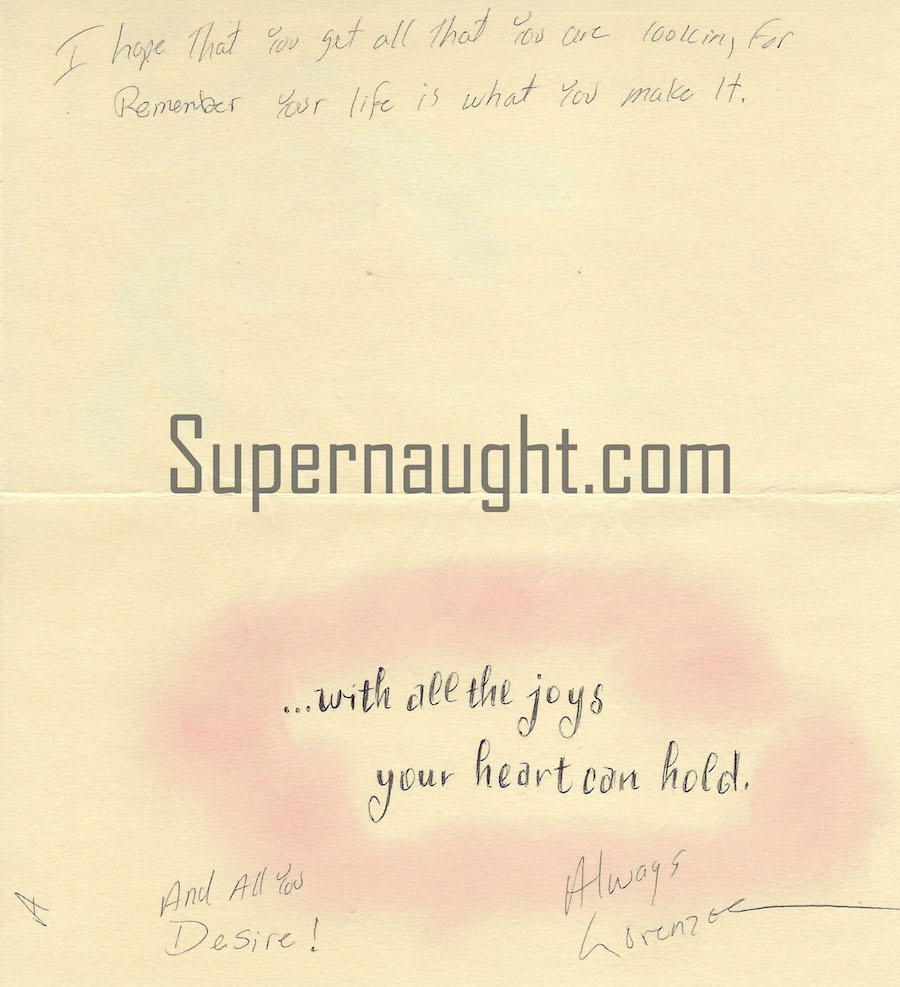 I hope That You get all that You are looking For
Remember Your life is what You make It.
Supernaught.com
...with all the joys
your heart can hold.
And All You
Desire!
Always
Lorenzo
A